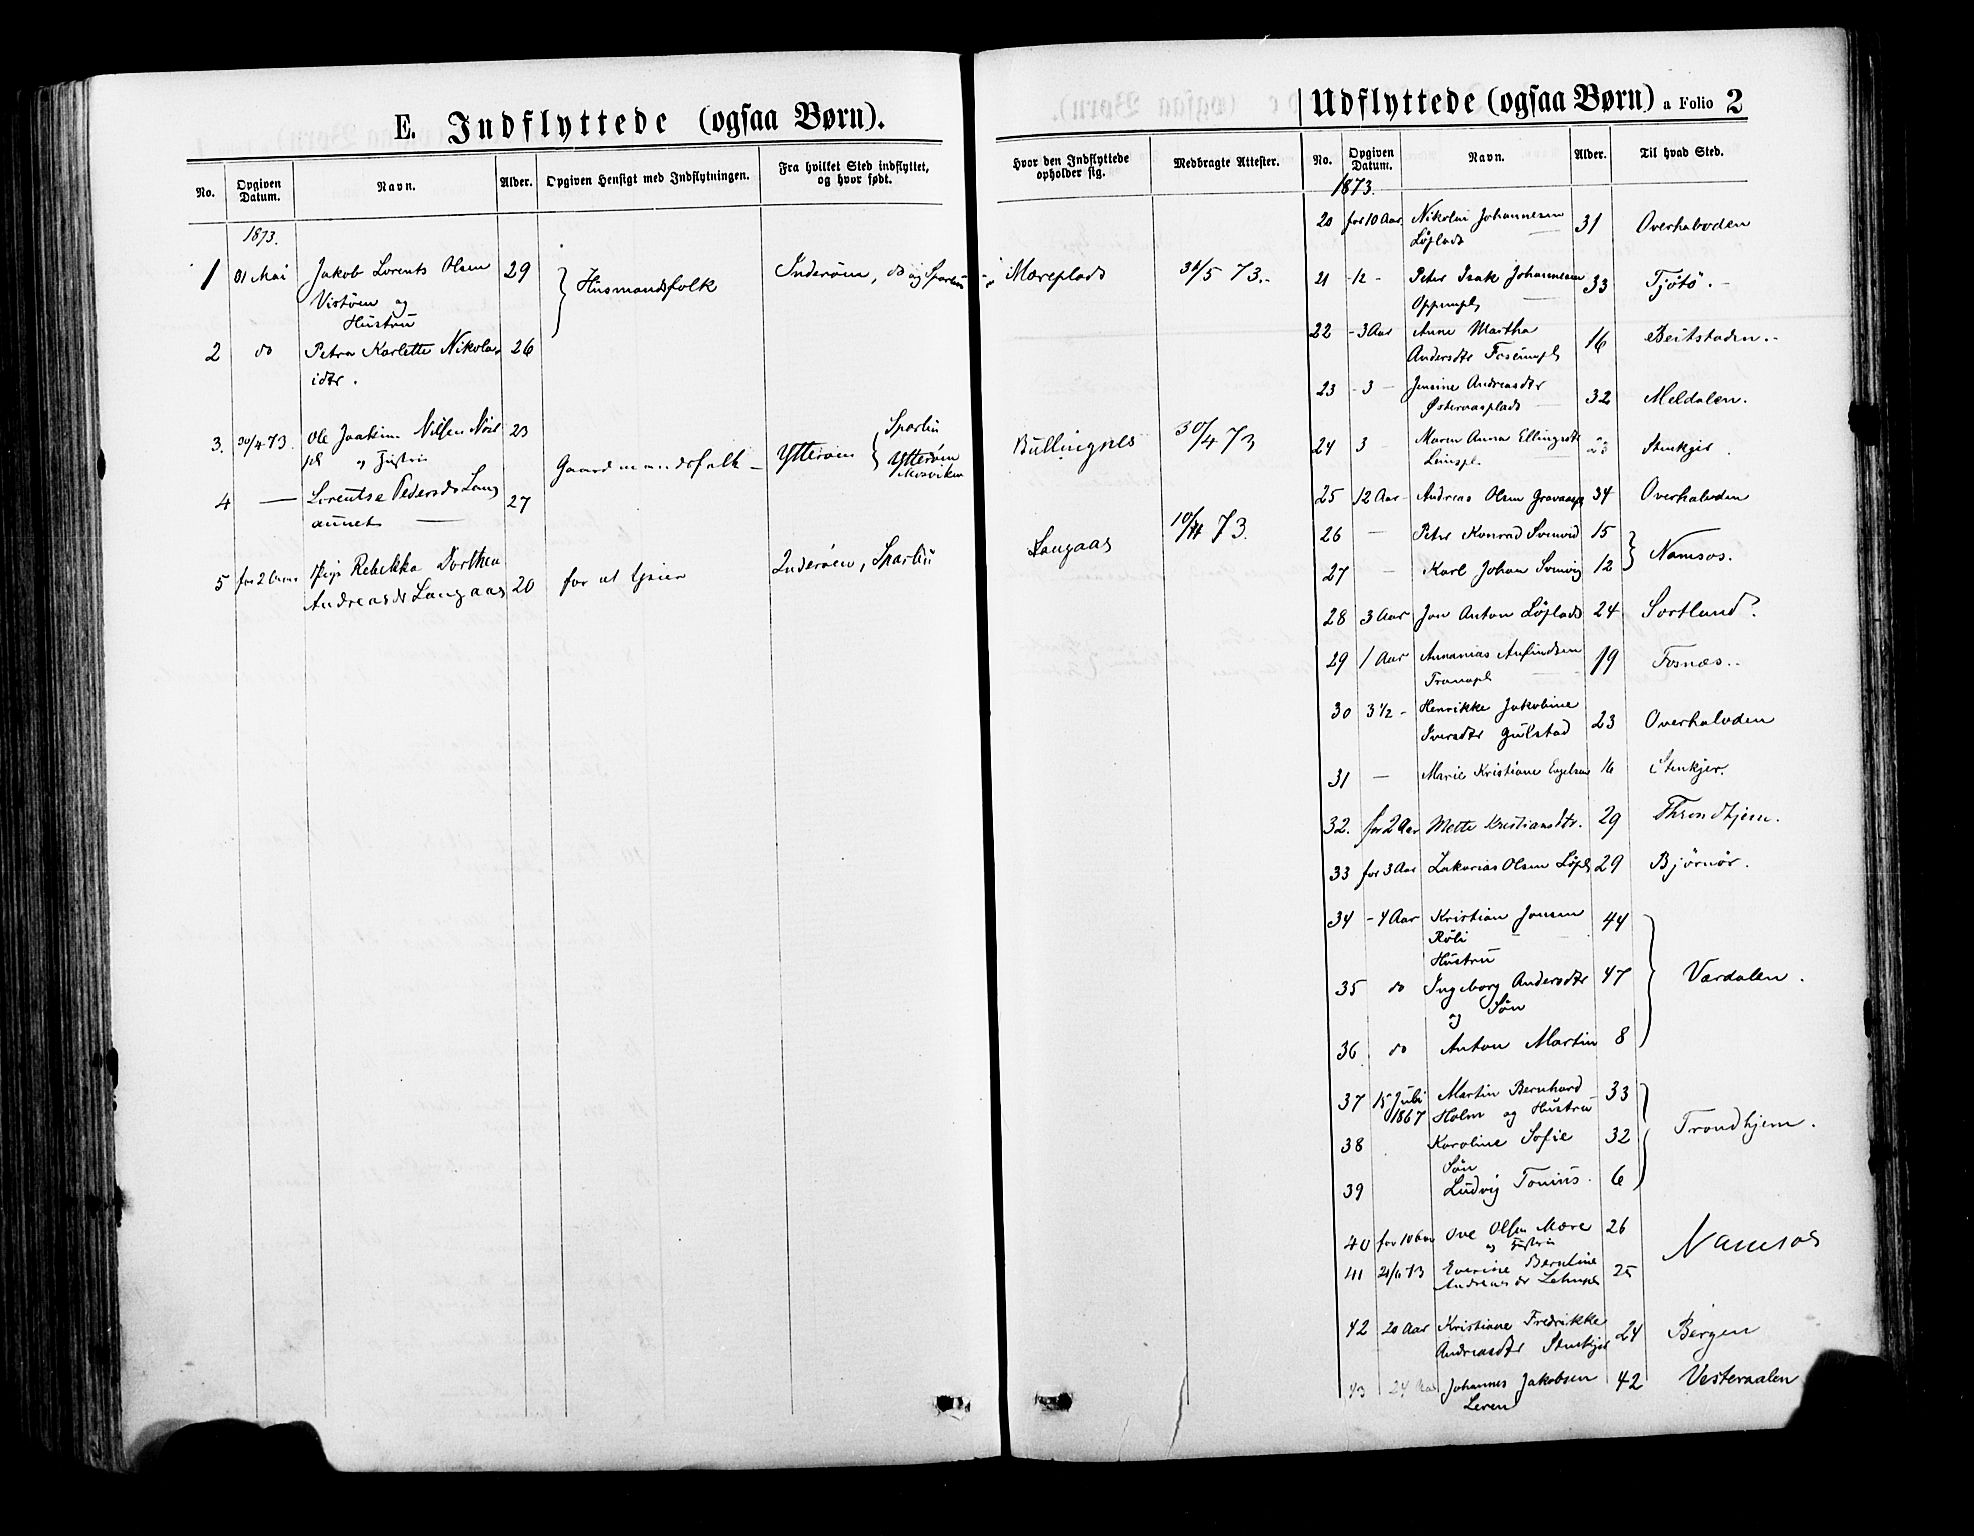 E. Indflyttede (ogsaa Børn).
No. Opgiven Datum. Navn. Alder. Opgiven Hensigt med Indflytningen. Fra hvilket Sted indflyttet, og hvor født. Hvor den Indflyttede opholder sig. Medbragte Attester.
1873.
1 31 Mai Jakob Lorents Olsen 29 Husmandsfolk Inderøen, do og Sparbu Mæreplads 31/5 73.
Vistøen og
Hustru
2 do Petra Karlette Nikola- 26
idtr.
3. 30/4 73. Ole Joakim Nilsen 23 Gaardmandsfolk Ytterøen Sparbu Bullingnes 30/4 73
pl og Hustru Ytterøen
Mosviken
4 — Lorentse Pedersdr Lang 27
aunet
5 for 2 Pige Rebekka Dorthea 20 for at tjene Inderøen, Sparbu Langaas 73.
Andreasdr Langaas
Udflyttede (ogsaa Børn) a Folio 2
No. Opgiven Datum. Navn. Alder. Til hvad Sted.
1873.
20 for 10 Aar Nikolai Johannesen 31 Overhalvden
Løplads
21 -12- Peter Isak Johannesen 33 Tjøtø.
22 -3 Aar Anne Martha 16 Beitstaden.
Andersdtr
23 -3 — Jensine Andreasdtr 32 Meldalen.
24 3 Maren Anna Ellingsdtr Stenkjer.
25 12 Aar Andreas Olsen 34 Overhalvden
26 — Peter Konrad 15 Namsos.
27 — Karl Johan 12
28 3 Aar Jon Anton Løplads 24 Sortland.
29 1 Aar Annanias Anfindsen 19 Fosnæs.
30 3½ - Henrikke Jakobine 23 Overhalvden
Iversdtr Gulstad
31 — Marie Kristiane Engelsen 16 Stenkjer.
32. for 2 Aar Mette Kristiansdtr. 29 Throndhjem.
33 for 3 Aar Zakarias Olsen Løpl 29 Bjørnør.
34 - 4 Aar Kristian Jonsen 44 Værdalen.
Røli
Hustru
35 do Ingeborg Andersdtr 47
og Søn
36 do Anton Martin 8
37 15 Juli 1867 Martin Bernhard 33 Trondhjem.
Holm og Hustru
38 Karoline Sofie 32
Søn
39 Ludvig Tonius. 6
40 for 10 Aar Ove Olsen Mære 26 Namsos
og Hustru
41 Berntine 25
Andreasdr
42 20 Aar Kristiane Fredrikke 24 Bergen
Andreasdtr Stenkjer
43 24 Aar Johannes Jakobsen 42 Vesteraalen
Leren